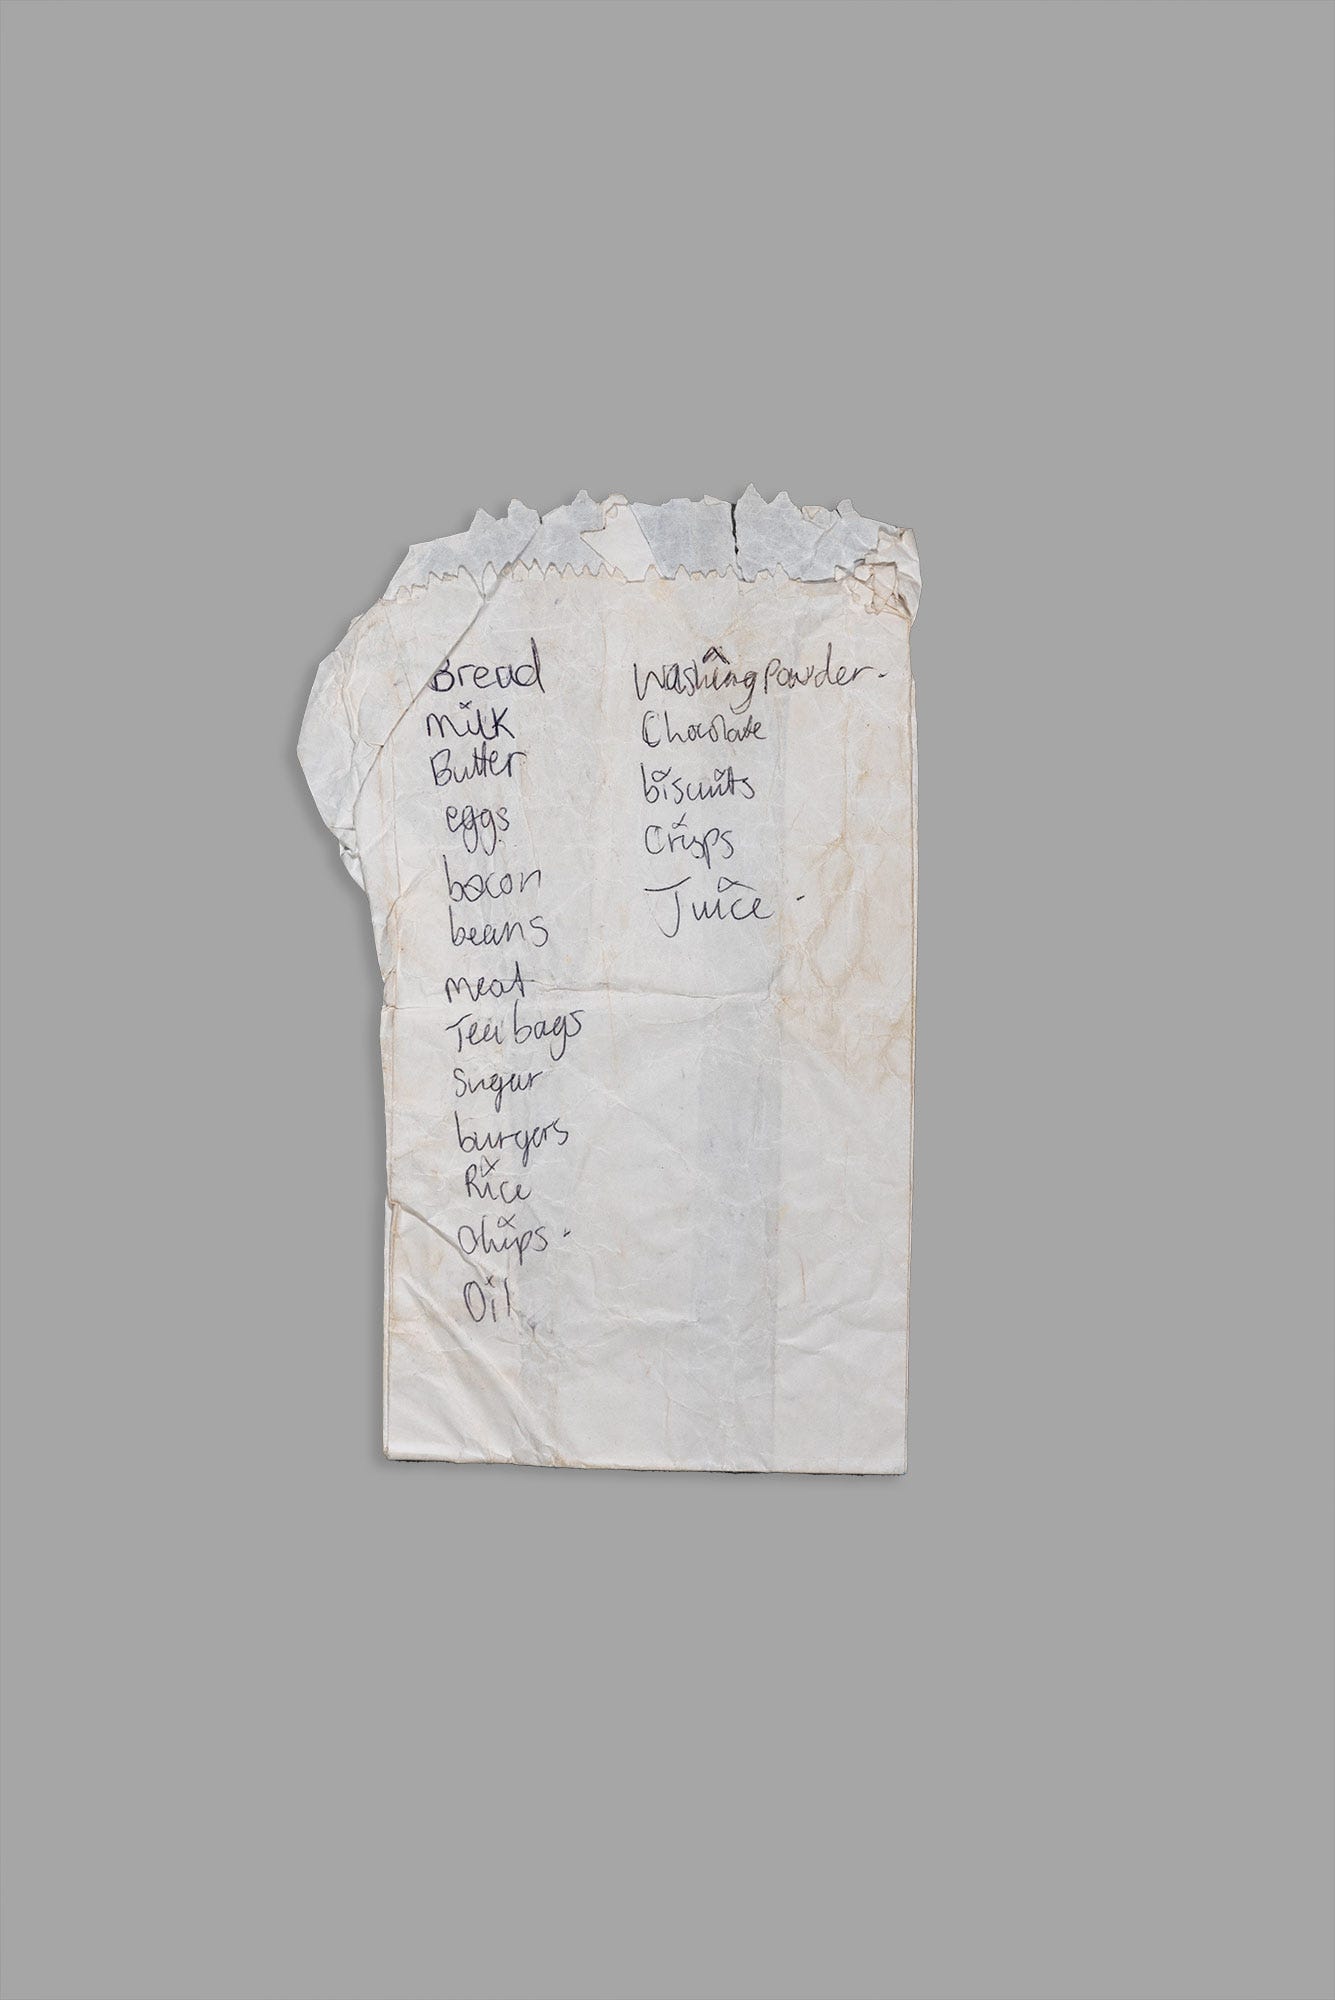 Bread
Milk
Butter
eggs
bacon
beans
meat
Tea bags
Sugar
burgers
Rice
Chips.
Oil
Washing Powder.
Chocolate
biscuits
Crisps
Juice.